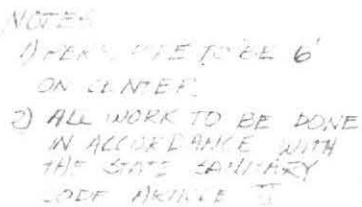 NOTES
1) PERF. PIPE TO BE 6'
ON CENTER.
2) ALL WORK TO BE DONE
IN ACCORDANCE WITH
THE STATE SANITARY
CODE ARTICLE